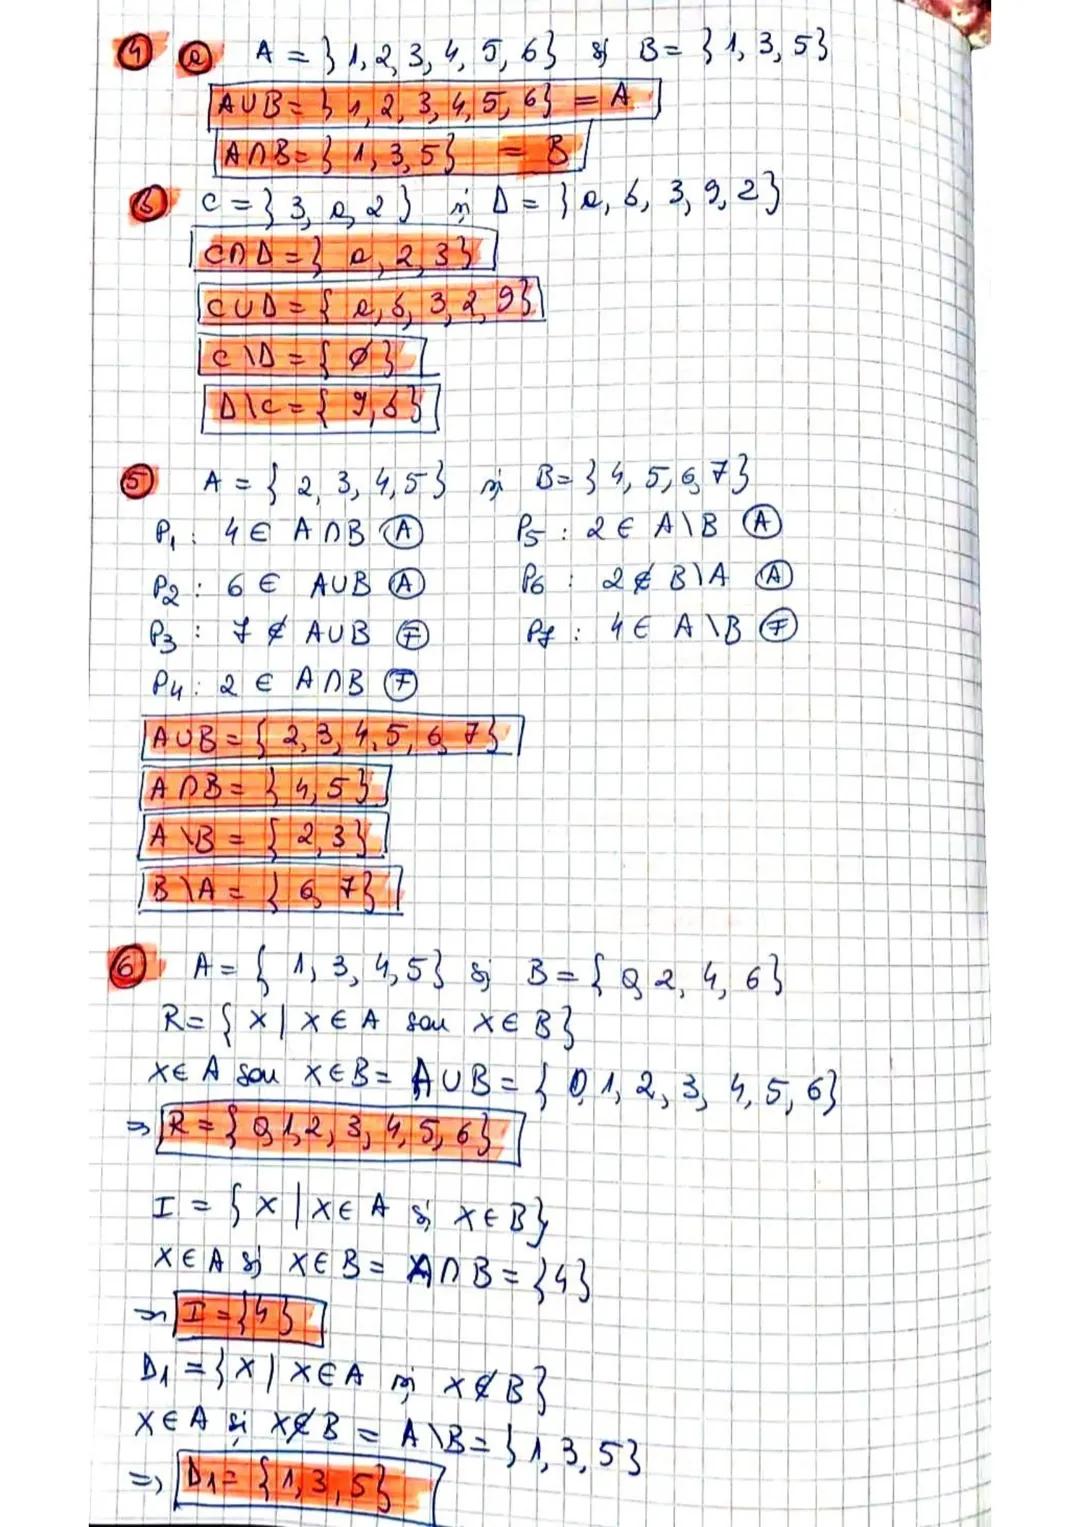 4 a A = {1, 2, 3, 4, 5, 6} și B = {1, 3, 5}
A∪B = {1, 2, 3, 4, 5, 6} = A
A∩B = {1, 3, 5} = B
b C = {3, a, 2} și D = {a, b, 3, 9, 2}
C∩D = {a, 2, 3}
C∪D = {a, b, 3, 2, 9}
C\D = {∅}
D\C = {9, b}
5 A = {2, 3, 4, 5} și B = {4, 5, 6, 7}
P1: 4 ∈ A∩B A P5: 2 ∈ A\B A
P2: 6 ∈ A∪B A P6: 2 ∉ B\A A
P3: 7 ∉ A∪B F P7: 4 ∈ A\B F
P4: 2 ∈ A∩B F
A∪B = {2, 3, 4, 5, 6, 7}
A∩B = {4, 5}
A\B = {2, 3}
B\A = {6, 7}
6 A = {1, 3, 4, 5} și B = {0, 2, 4, 6}
R = {x | x ∈ A sau x ∈ B}
x ∈ A sau x ∈ B = A∪B = {0, 1, 2, 3, 4, 5, 6}
⇒ R = {0, 1, 2, 3, 4, 5, 6}
I = {x | x ∈ A și x ∈ B}
x ∈ A și x ∈ B = A∩B = {4}
⇒ I = {4}
D1 = {x | x ∈ A și x ∉ B}
x ∈ A și x ∉ B = A\B = {1, 3, 5}
⇒ D1 = {1, 3, 5}